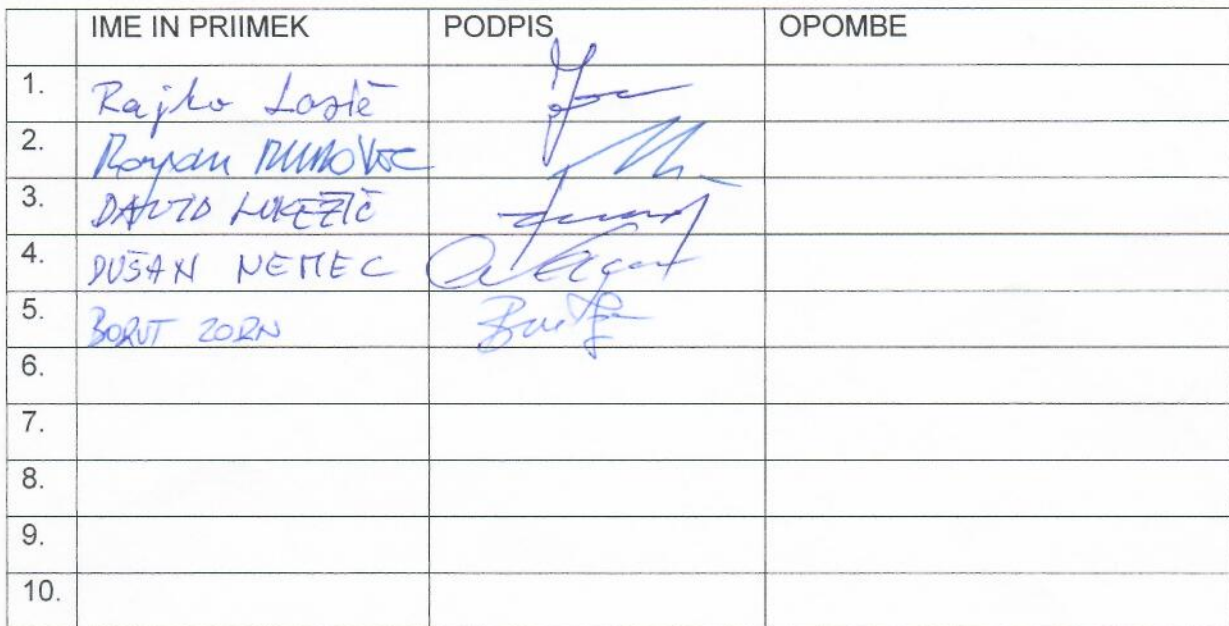 IME IN PRIIMEK PODPIS OPOMBE
1. Rajko
2. Roman
3. DAVID LUKEŽIČ
4. DUŠAN NEMEC
5. BORUT ZORN
6.
7.
8.
9.
10.